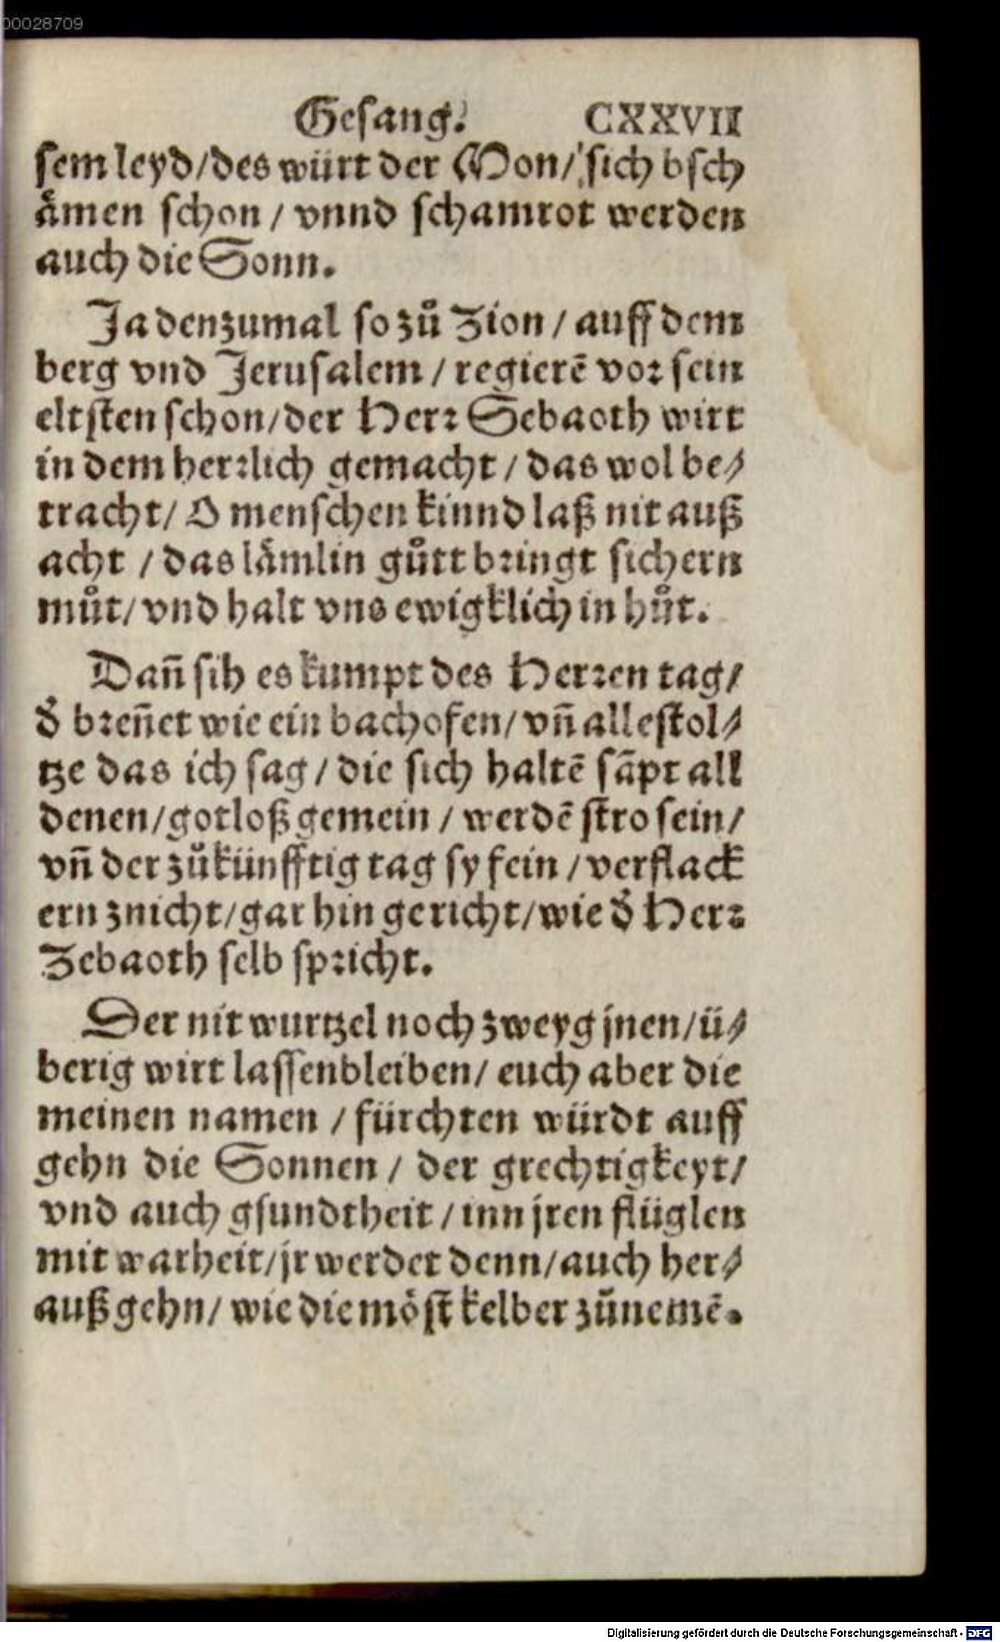 00028709
Gesang. CXXVII
sem leyd/des würt der Mon/ sich bsch
aͤmen schon / vnnd schamrot werden
auch die Sonn.
Ja denzumal so zů Zion / auff dem
berg vnd Jerusalem / regierē vor sein
eltsten schon/der Herr Sebaoth wirt
in dem herrlich gemacht / das wol be⸗
tracht/ O menschen kinnd laß nit auß
acht / das laͤmlin guͦtt bringt sichern
muͦt/ vnd halt vns ewigklich in huͦt.
Dañ sih es kumpt des Herren tag/
d̕ breñet wie ein bachofen/ vñ alle stol⸗
tze das ich sag / die sich haltē sāpt all
denen/gotloß gemein / werdē stro sein/
vñ der zuͦkünfftig tag sy fein / verflack
ern znicht/gar hin gericht/wie d̕ Herr
Zebaoth selb spricht.
Der nit wurtzel noch zweyg jnen/ü⸗
berig wirt lassenbleiben/ euch aber die
meinen namen / fürchten würdt auff
gehn die Sonnen / der grechtigkeyt/
vnd auch gsundtheit / inn jren flüglen
mit warheit/jr werdet denn/auch her⸗
auß gehn/ wie die moͤst kelber zuͦnemē.
Digitalisierung gefördert durch die Deutsche Forschungsgemeinschaft - DFG